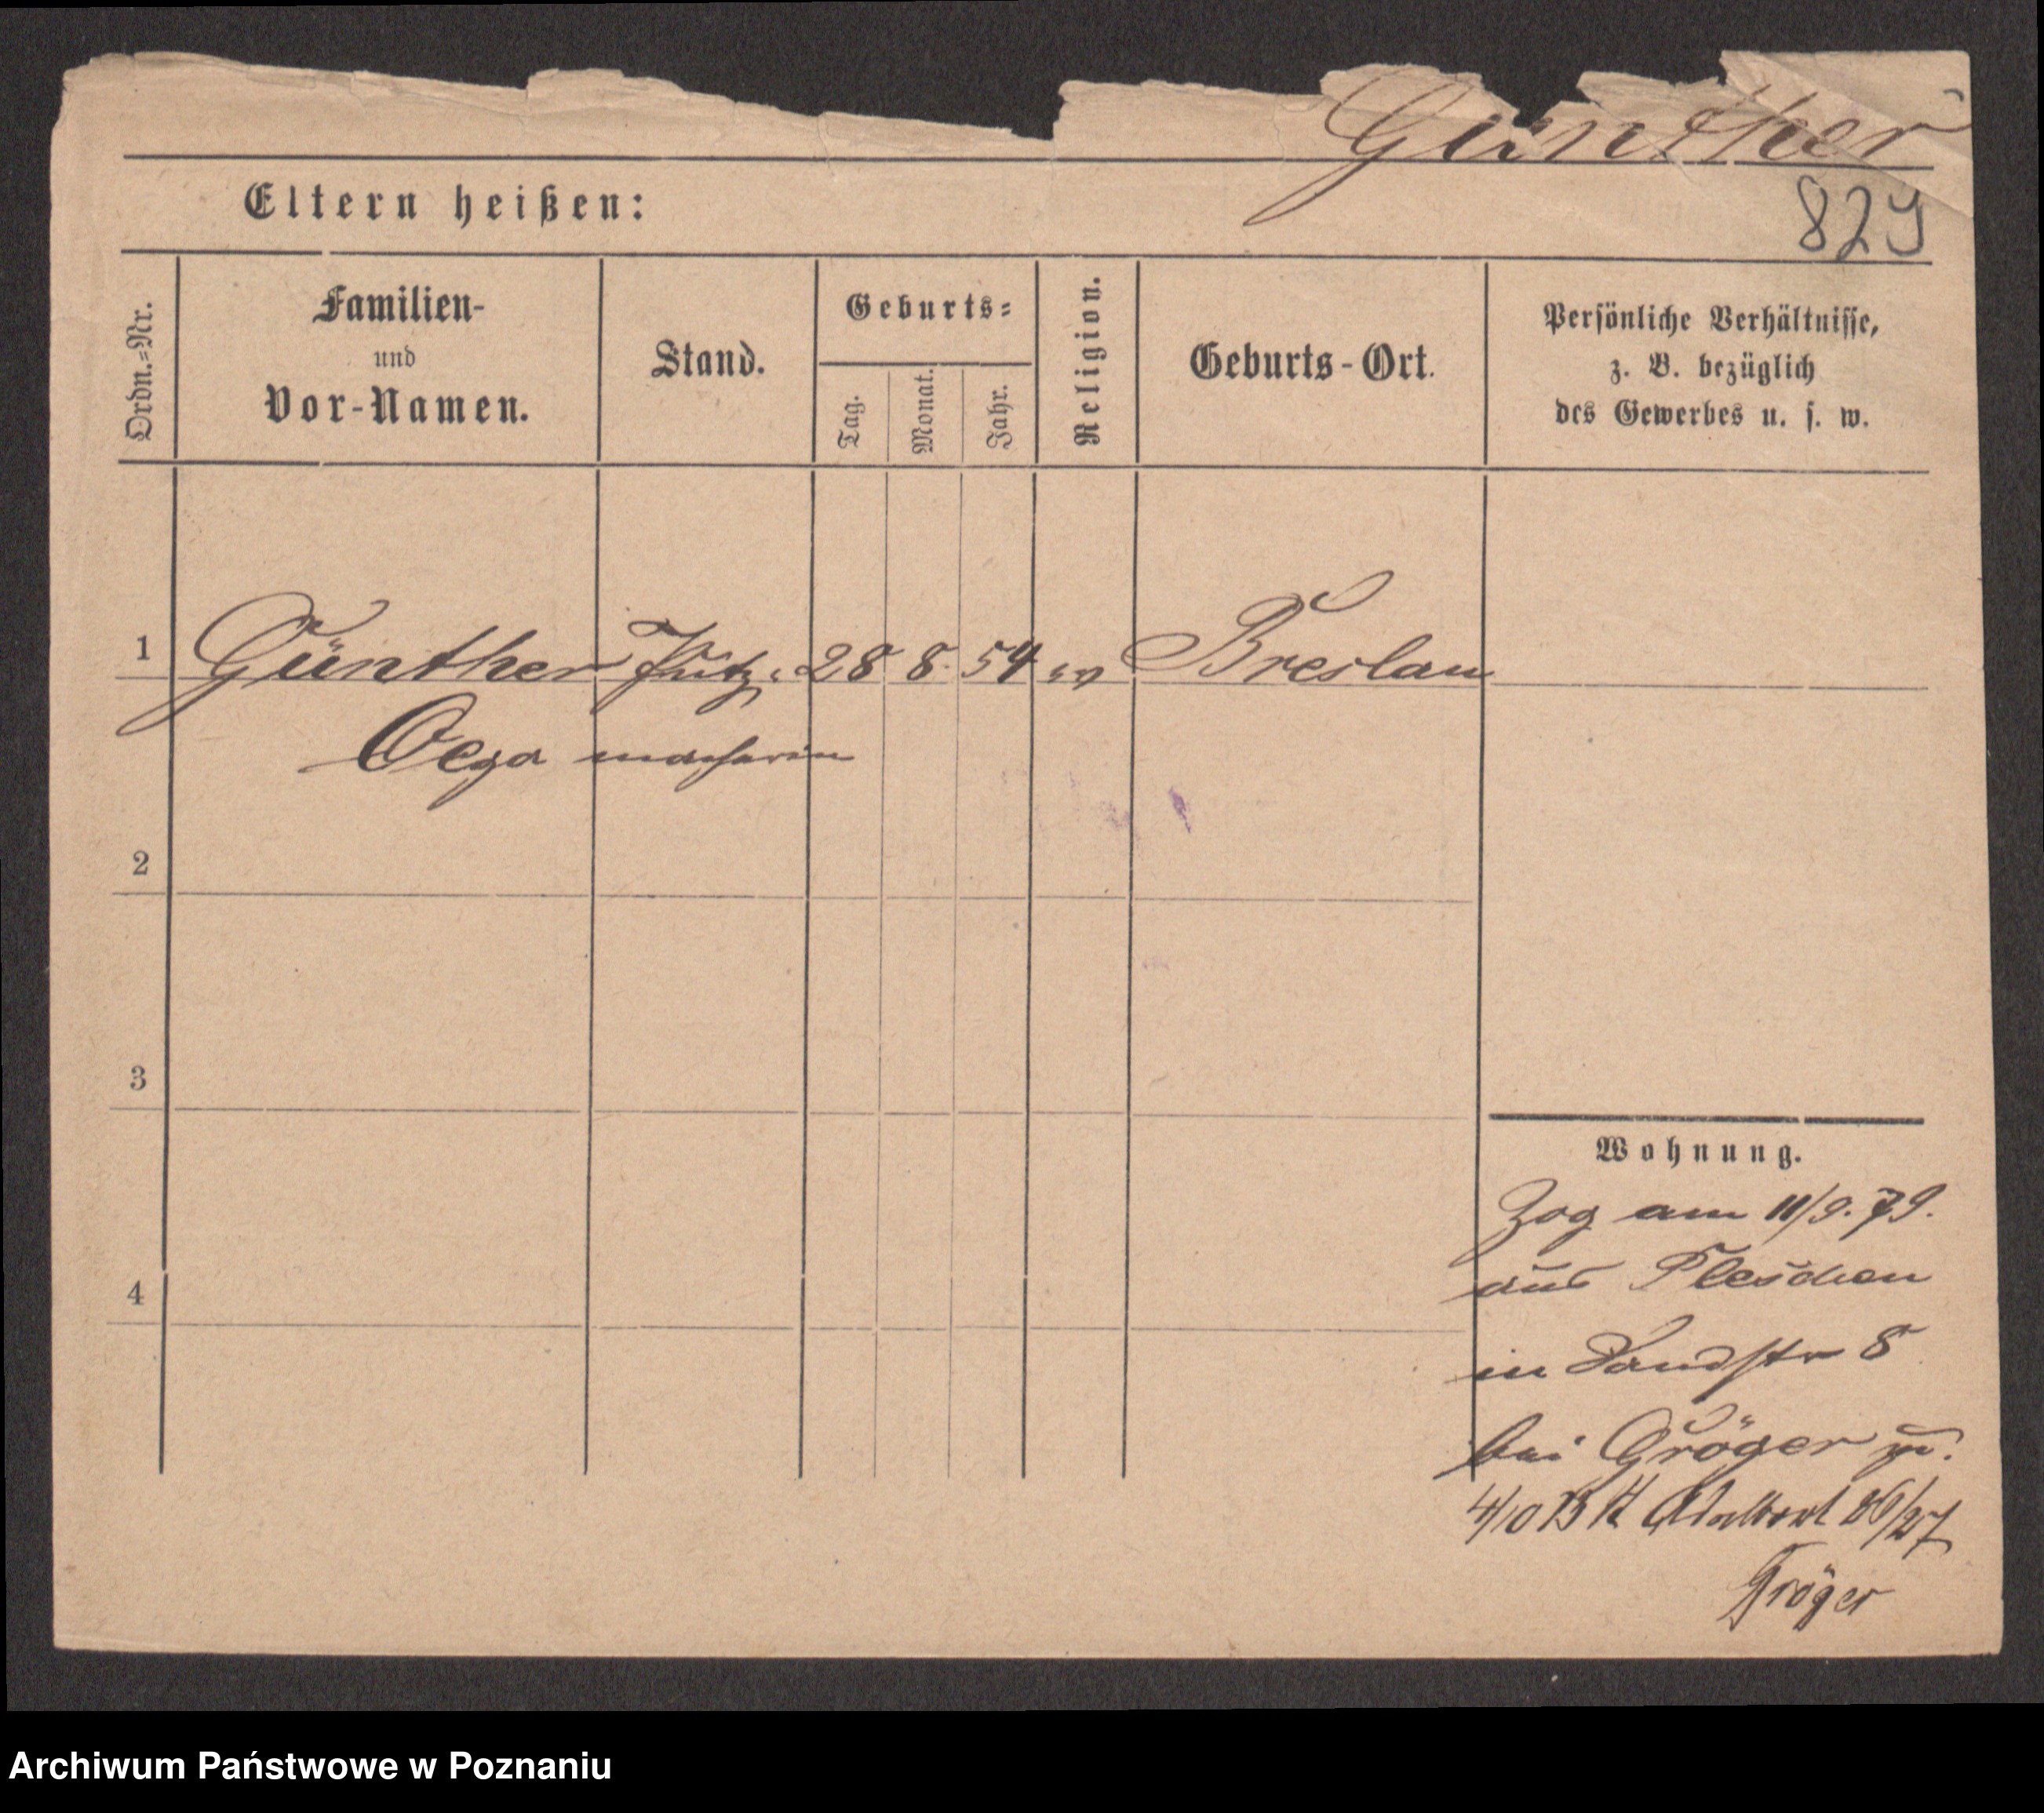 Günther
829
Eltern heißen:
Ordn.=Nr.
Familien-
und
Vor-Namen.
Stand.
Geburts=
Tag.
Monat.
Jahr.
Religion.
Geburts-Ort.
Persönliche Verhältnisse,
z. B. bezüglich
des Gewerbes u. s. w.
1 Günther Putz 28 8. 54 ev Breslau
Olga macherin
2
3
4
Wohnung.
Zog am 11/9. 79.
aus Pleschen
in Sandstr 8
bei Gröger
4/10 Adalbert 26/27
Gröger
Archiwum Państwowe w Poznaniu